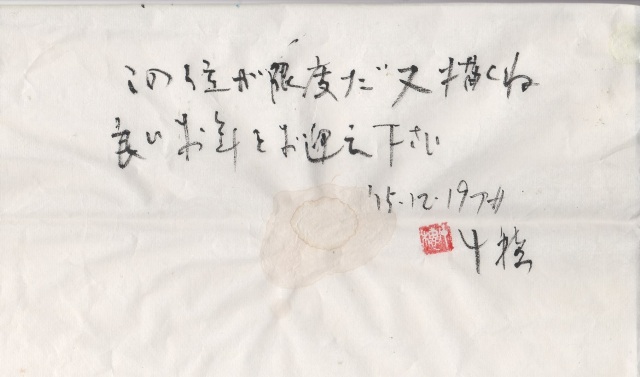 この位が限度だ又描くね
良いお年をお迎え下さい
'15.12.19